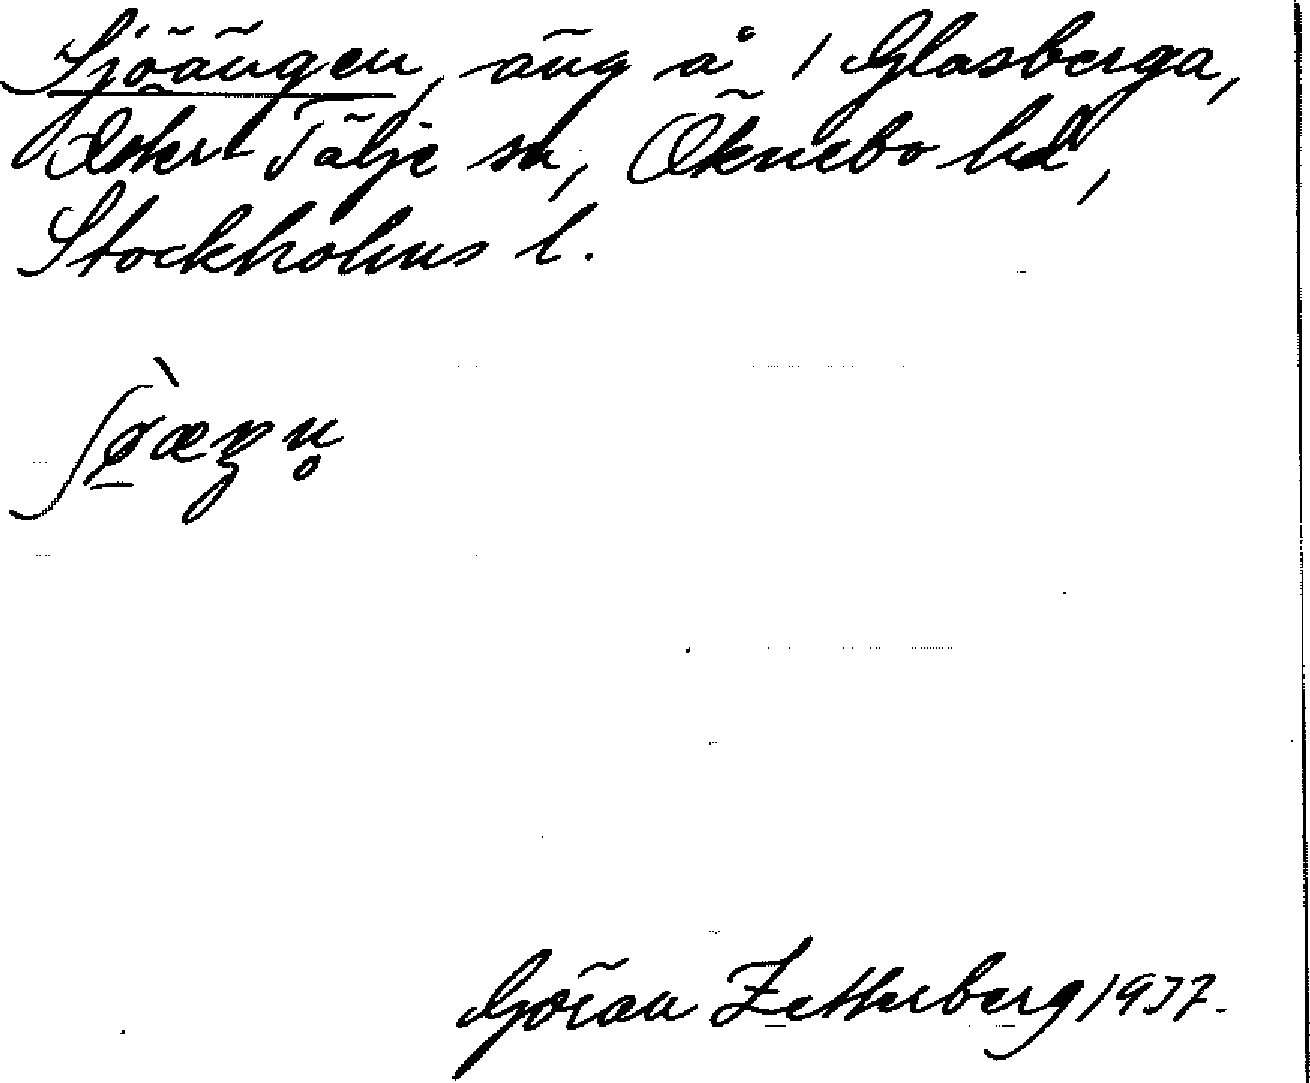 Sjöängen, äng å 1 Glasberga,
Öster-Tälje sn, Öknebo hd,
Stockholms l.
Göran Zetterberg 1937.